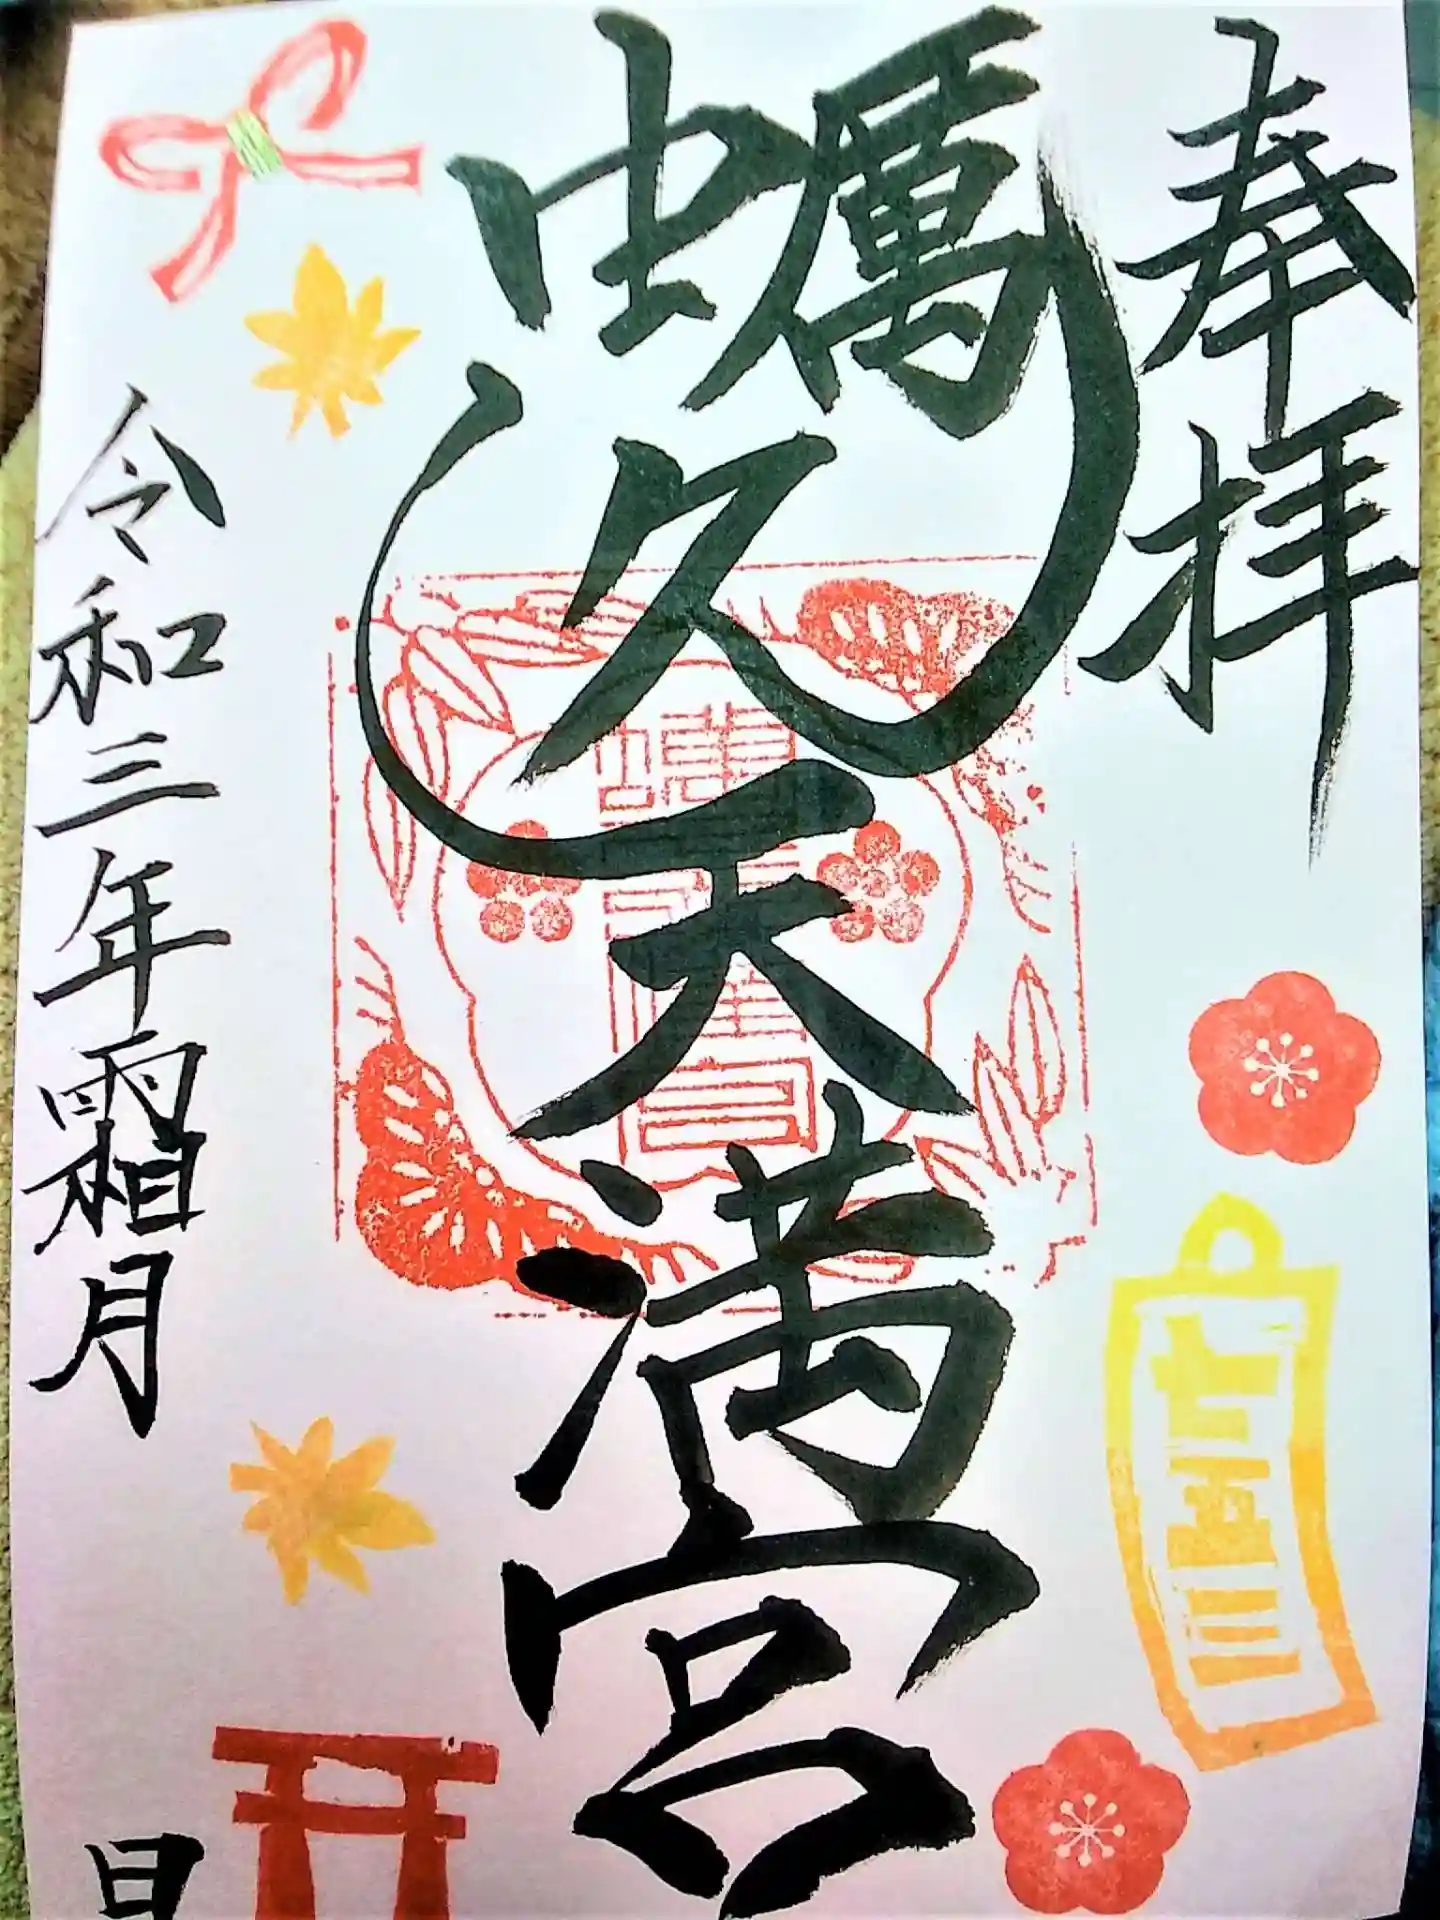 奉拝
蠣久天満宮
令和三年霜月 日